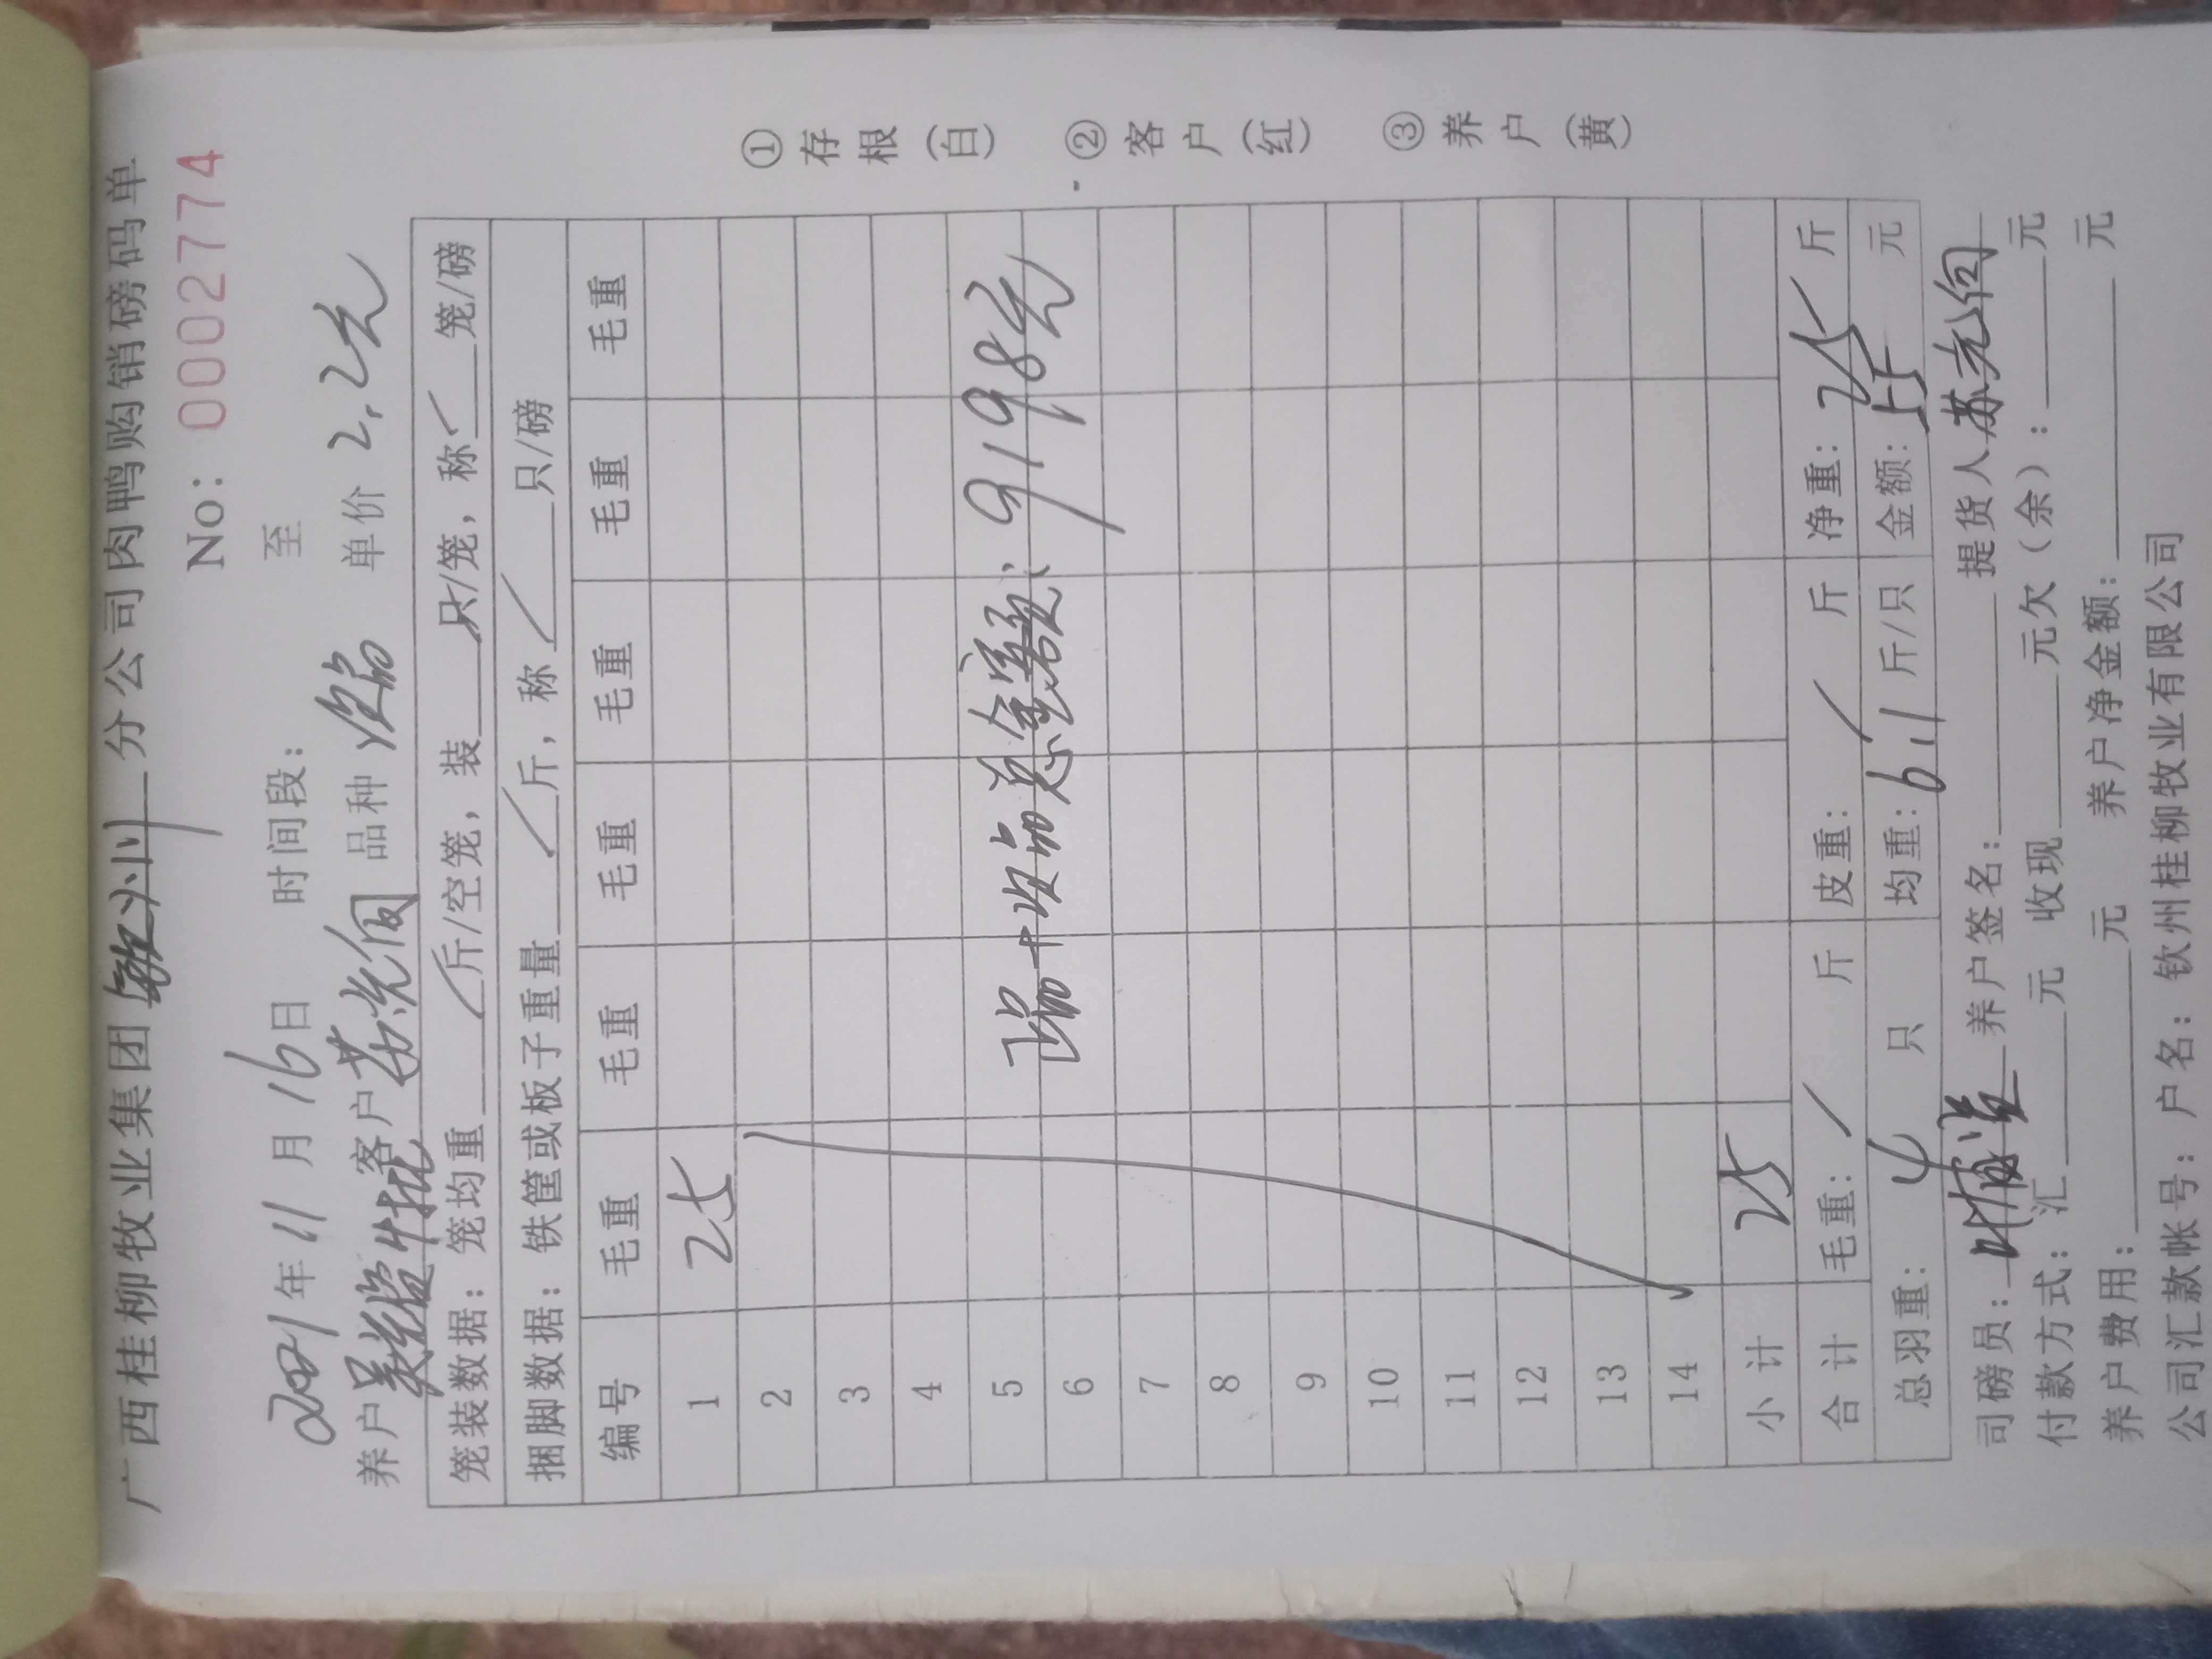 广西桂柳牧业集团 分公司肉鸭购销磅码单
No: 0002774
2021年11月16日 时间段: 至
养户 客户 苏光 品种 次品 单价 2.2元
笼装数据: 笼均重 / 斤/空笼, 装 只/笼, 称 笼/磅
捆脚数据: 铁筐或板子重量 / 斤, 称 / 只/磅
编号 毛重 毛重 毛重 毛重 毛重 毛重
1 25
2
3
4
5
6
正品+次品总金额: 9198元
7
8
9
10
11
12
13
14
小计 25
合计 毛重: / 斤 皮重: / 斤 净重: 25 斤
总羽重: 4 只 均重: 6.1 斤/只 金额: 55 元
司磅员: 养户签名: 提货人 苏光
付款方式: 汇 元 收现 元欠(余): 元
养户费用: 元 养户净金额: 元
公司汇款帐号: 户名: 钦州桂柳牧业有限公司
①存根(白) ②客户(红) ③养户(黄)